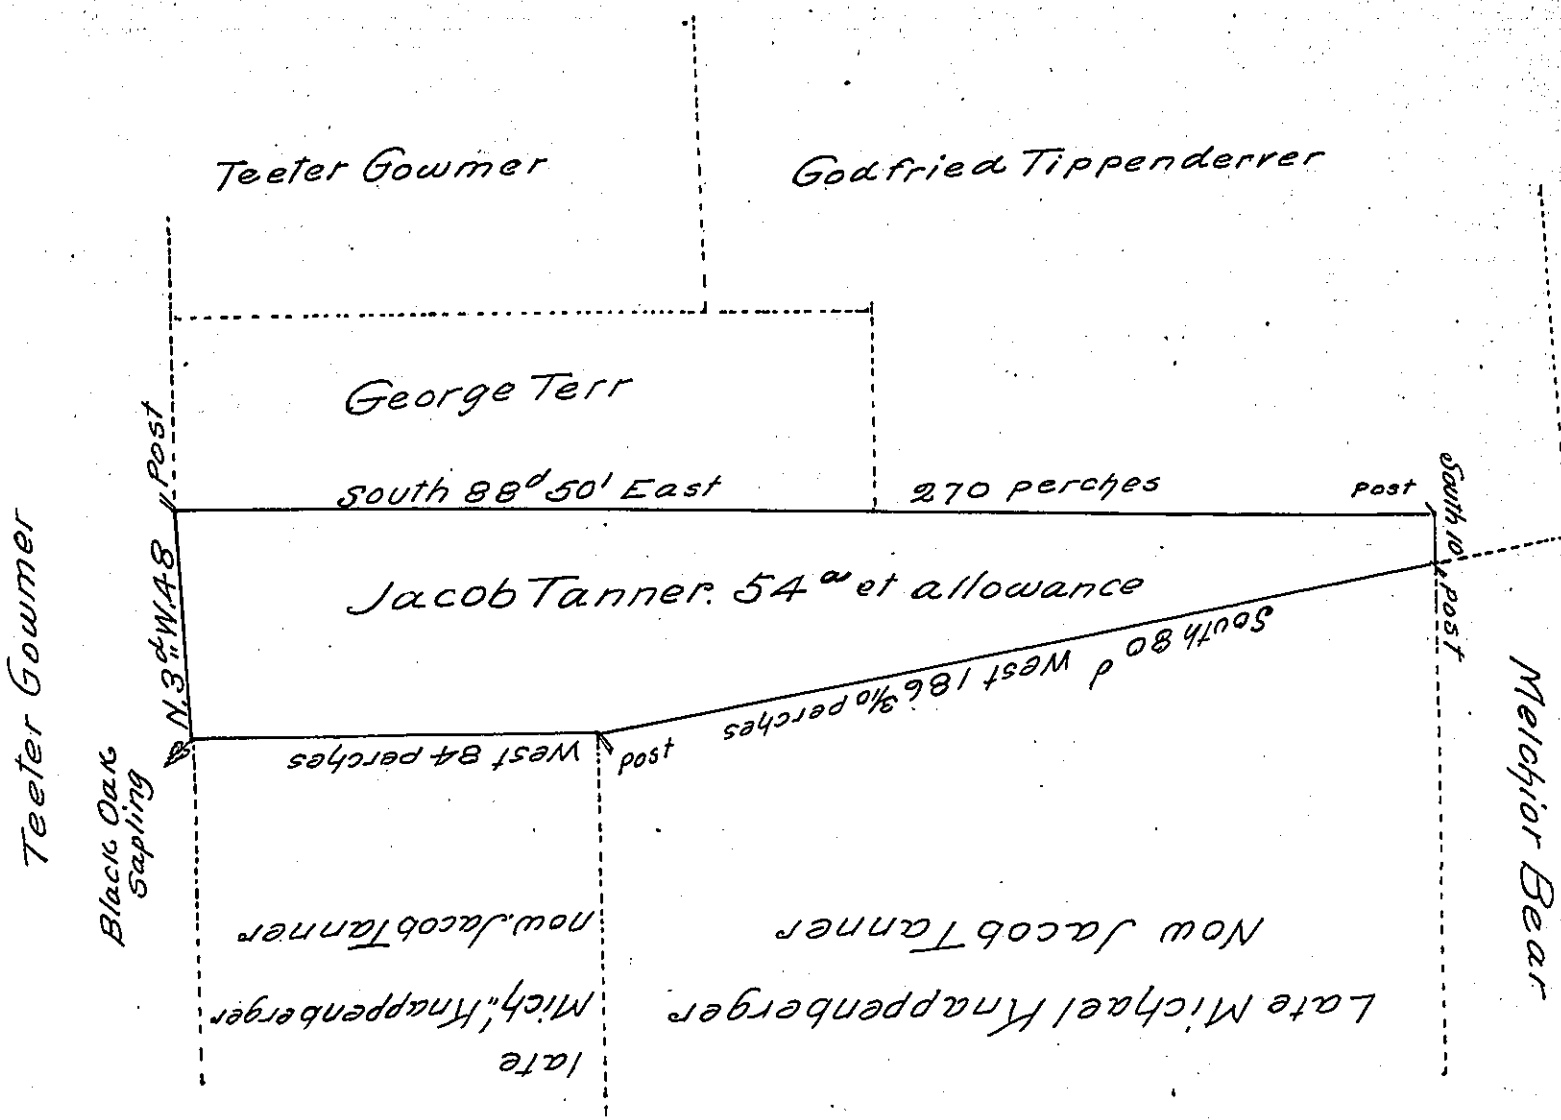 Teeter Gowmer
Godfried Tippenderrer
George Terr
Post
South 88d 50' East 270 perches
Post
South 10
Post
Jacob Tanner. 54 a et allowance
South 80d West 186 3/10 perches
Post
West 84 perches
N.3d"W.48
Black Oak
Sapling
Teeter Gowmer
Melchior Bear
late
Mich." Knappenberger
now Jacob Tanner
Late Michael Knappenberger
Now Jacob Tanner